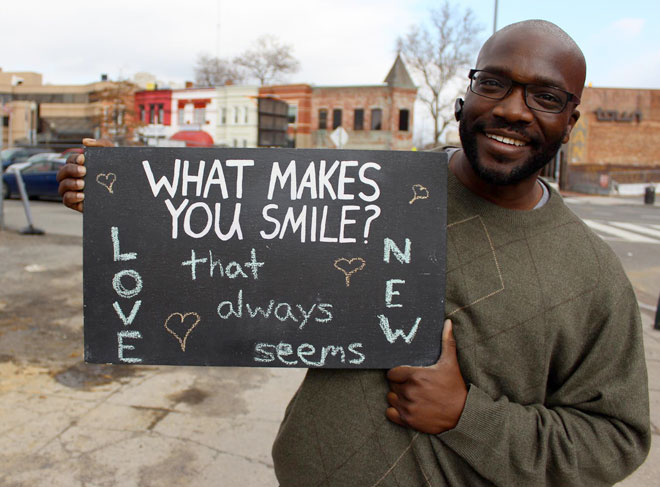 WHAT MAKES
YOU SMILE?
LOVE
that
always
seems
NEW